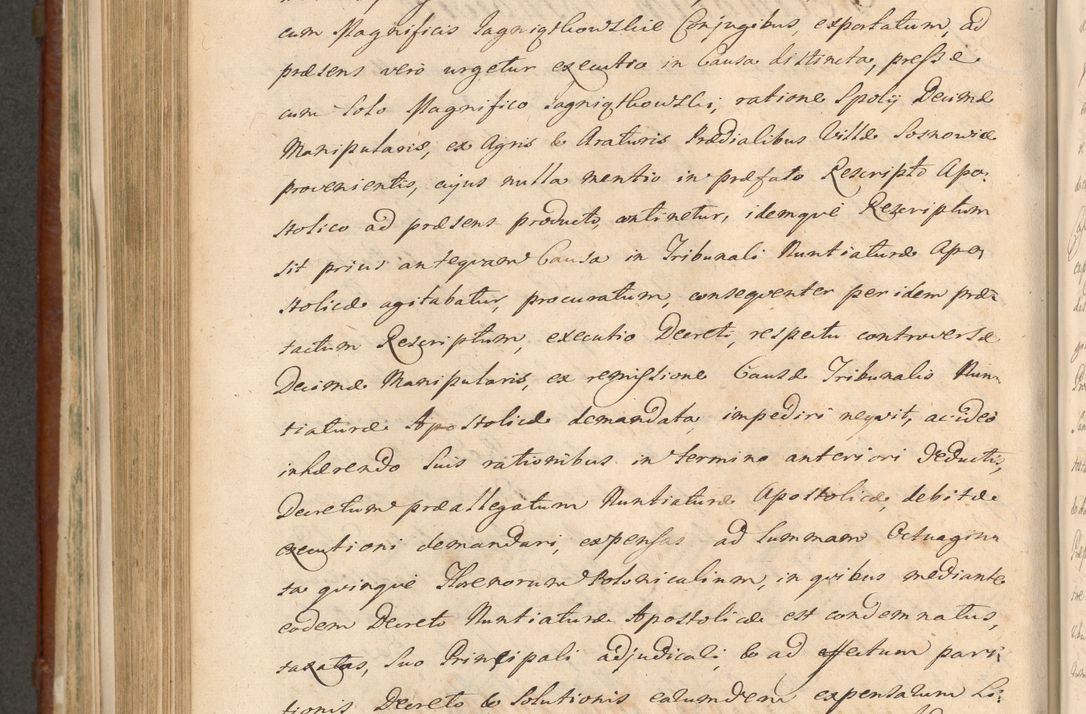 cum Magnificis Jagniątkowskie Conjugibus, exportatum, ad
præsens verò urgetur executio in Causa distincta, pressè
cum solo Magnifico Jagniątkowski, ratione Spolij Decimæ
Manipularis, ex Agris & Araturis Prædialibus Villæ Sosnowiæ
provenientis, cujus nulla mentio in præfato Rescripto Apo-
stolico ad præsens producto, continetur, idemquè Rescriptum
sit prius antequam Causa in Tribunali Nuntiaturæ Apo-
stolicæ agitabatur, procuratum, consequenter per idem præ-
tactum Rescriptum, executio Decreti, respectu controversæ
Decimæ Manipularis, ex remissione Causæ Tribunalis Nun-
tiaturæ Apostolicæ demandata, impediri nequit, ac ideò
inhærendo suis rationibus in termino anteriori deductis,
Decretum præallegatum Nuntiaturæ Apostolicæ, debitæ
executioni demandari, expensas ad summam Octuagin-
ta quinquè Florenorum Polonicalium, in quibus mediante
eodem Decreto Nuntiaturæ Apostolicæ est condemnatus,
taxatas, suo Principali adjudicali, & ad effectum pari-
tionis Decreto & solutionis earumdem expensarum